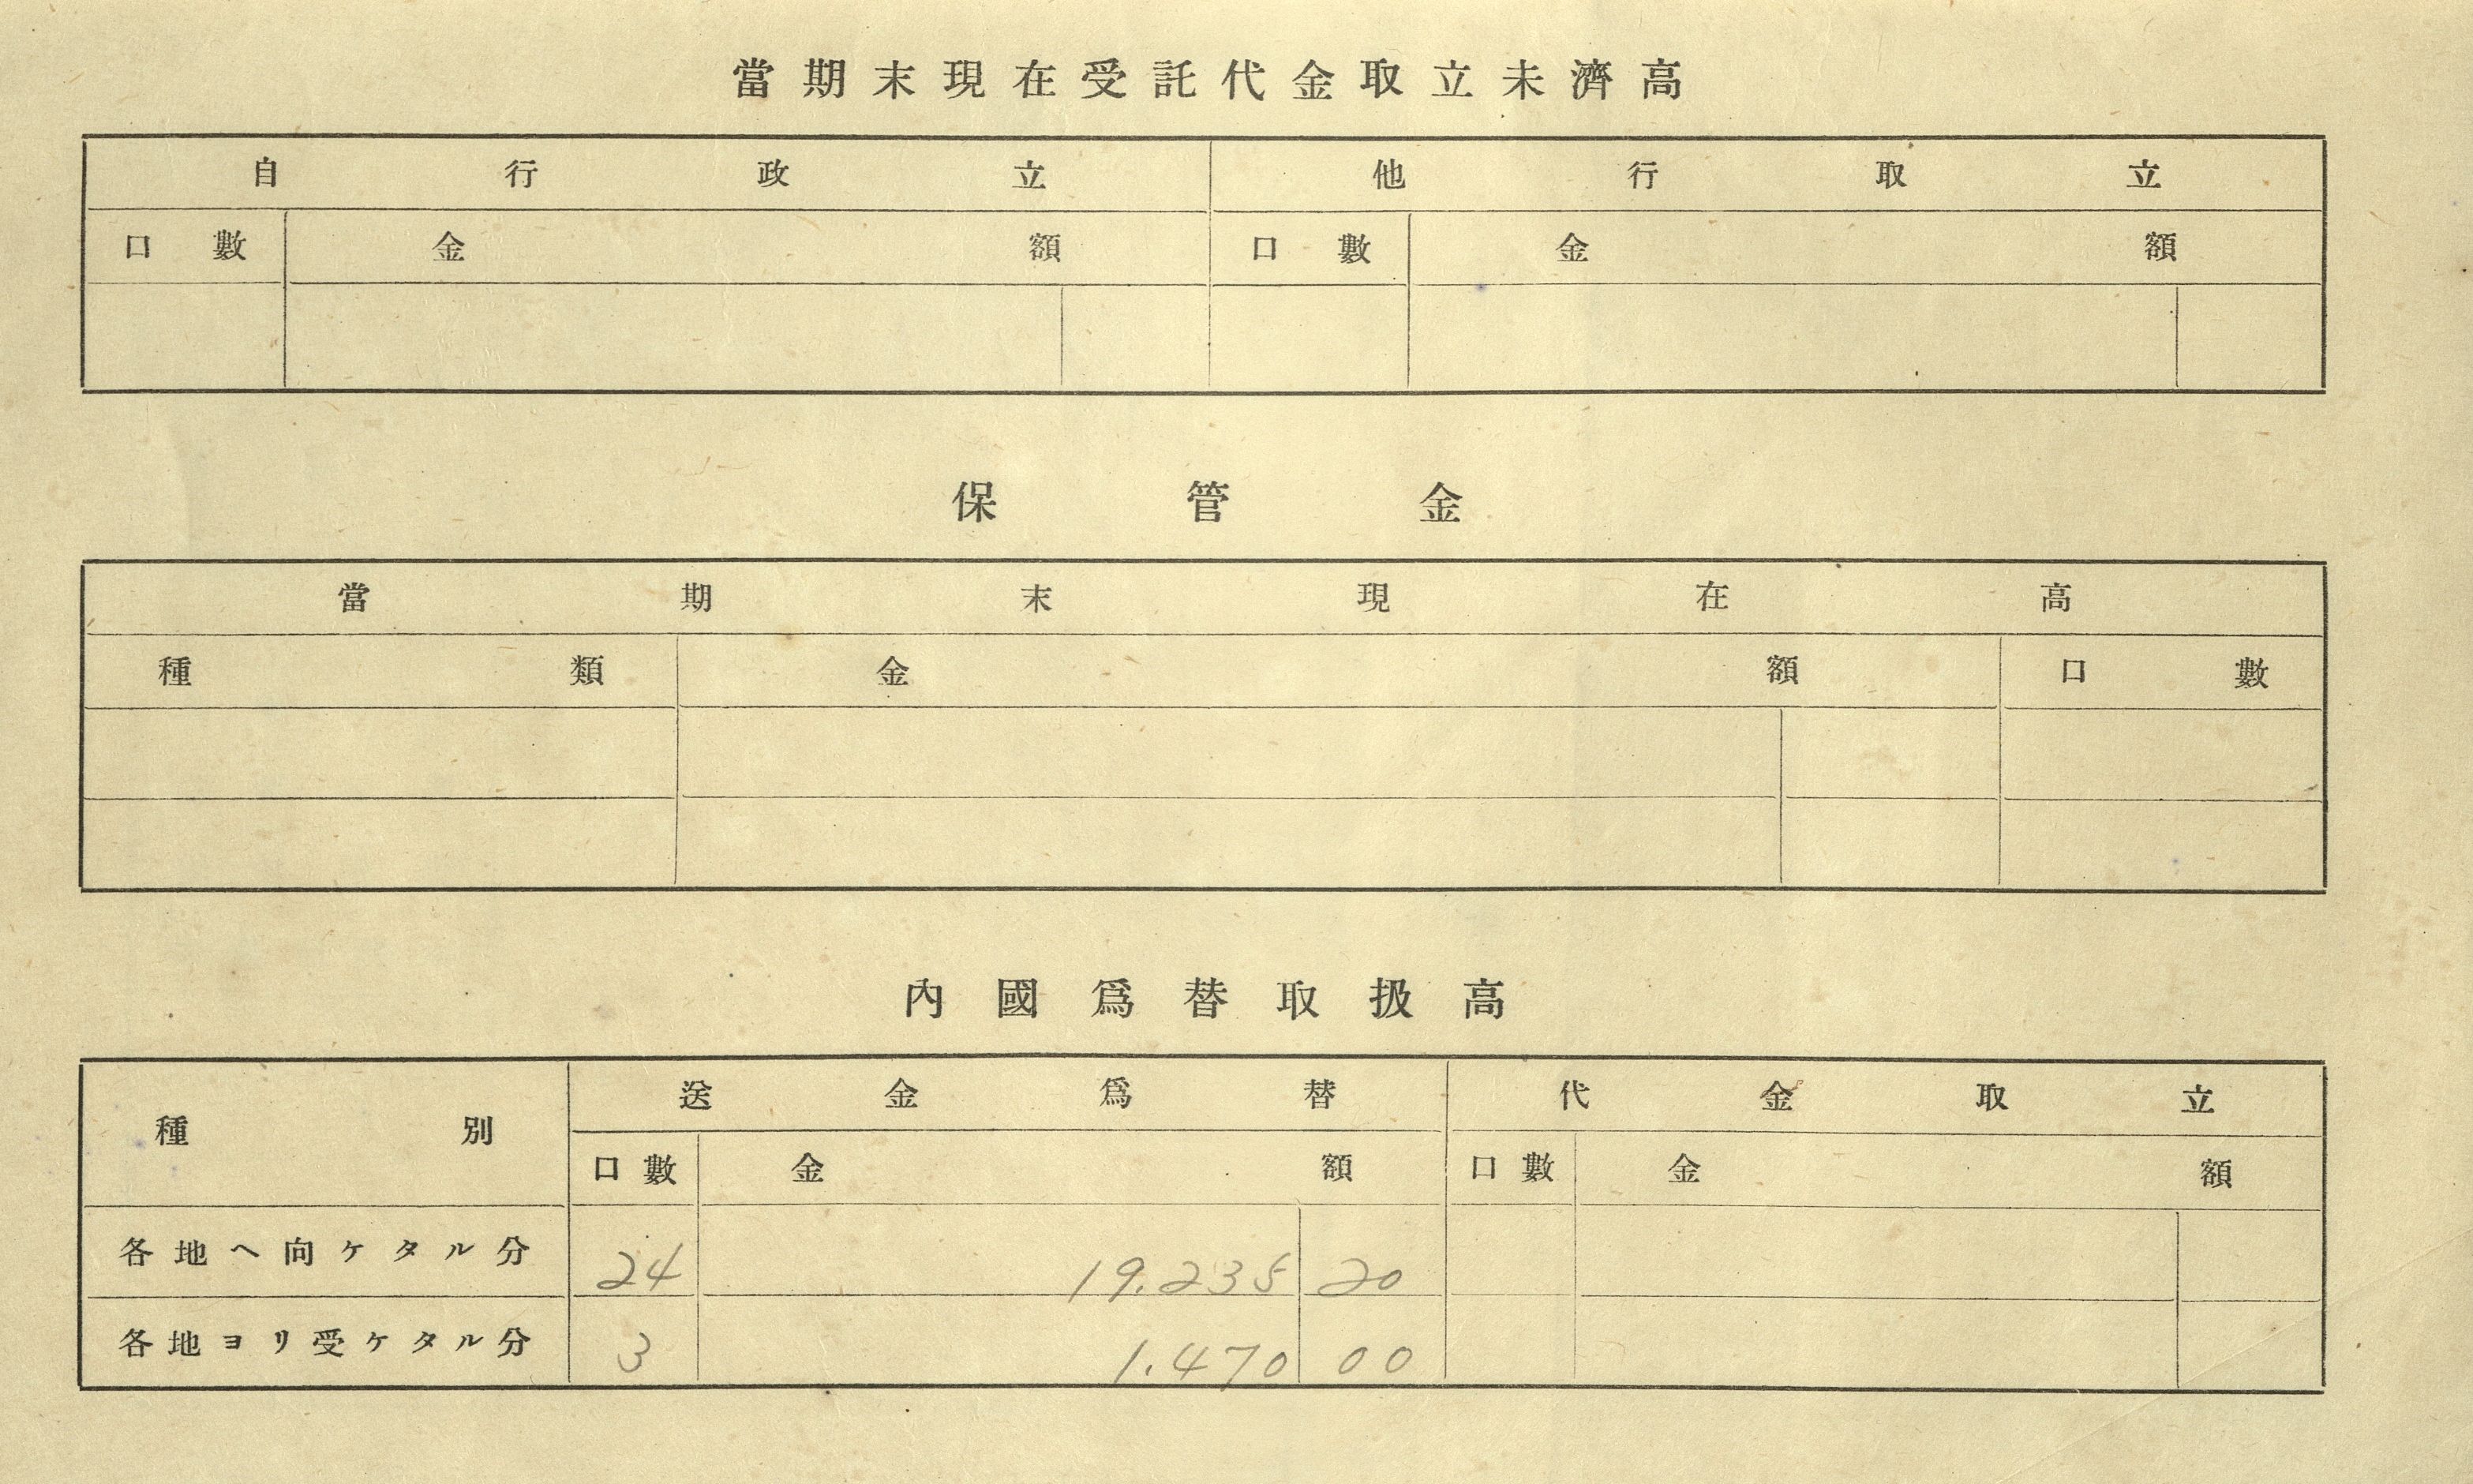 當期末現在受託代金取立未濟高
自行政立 他行取立
口數 金額 口數 金額
保管金
當期末現在高
種類 金額 口數
內國爲替取扱高
種別 送金爲替 代金取立
口數 金額 口數 金額
各地ヘ向ケタル分 24 19.235 20
各地ヨリ受ケタル分 3 1.470 00